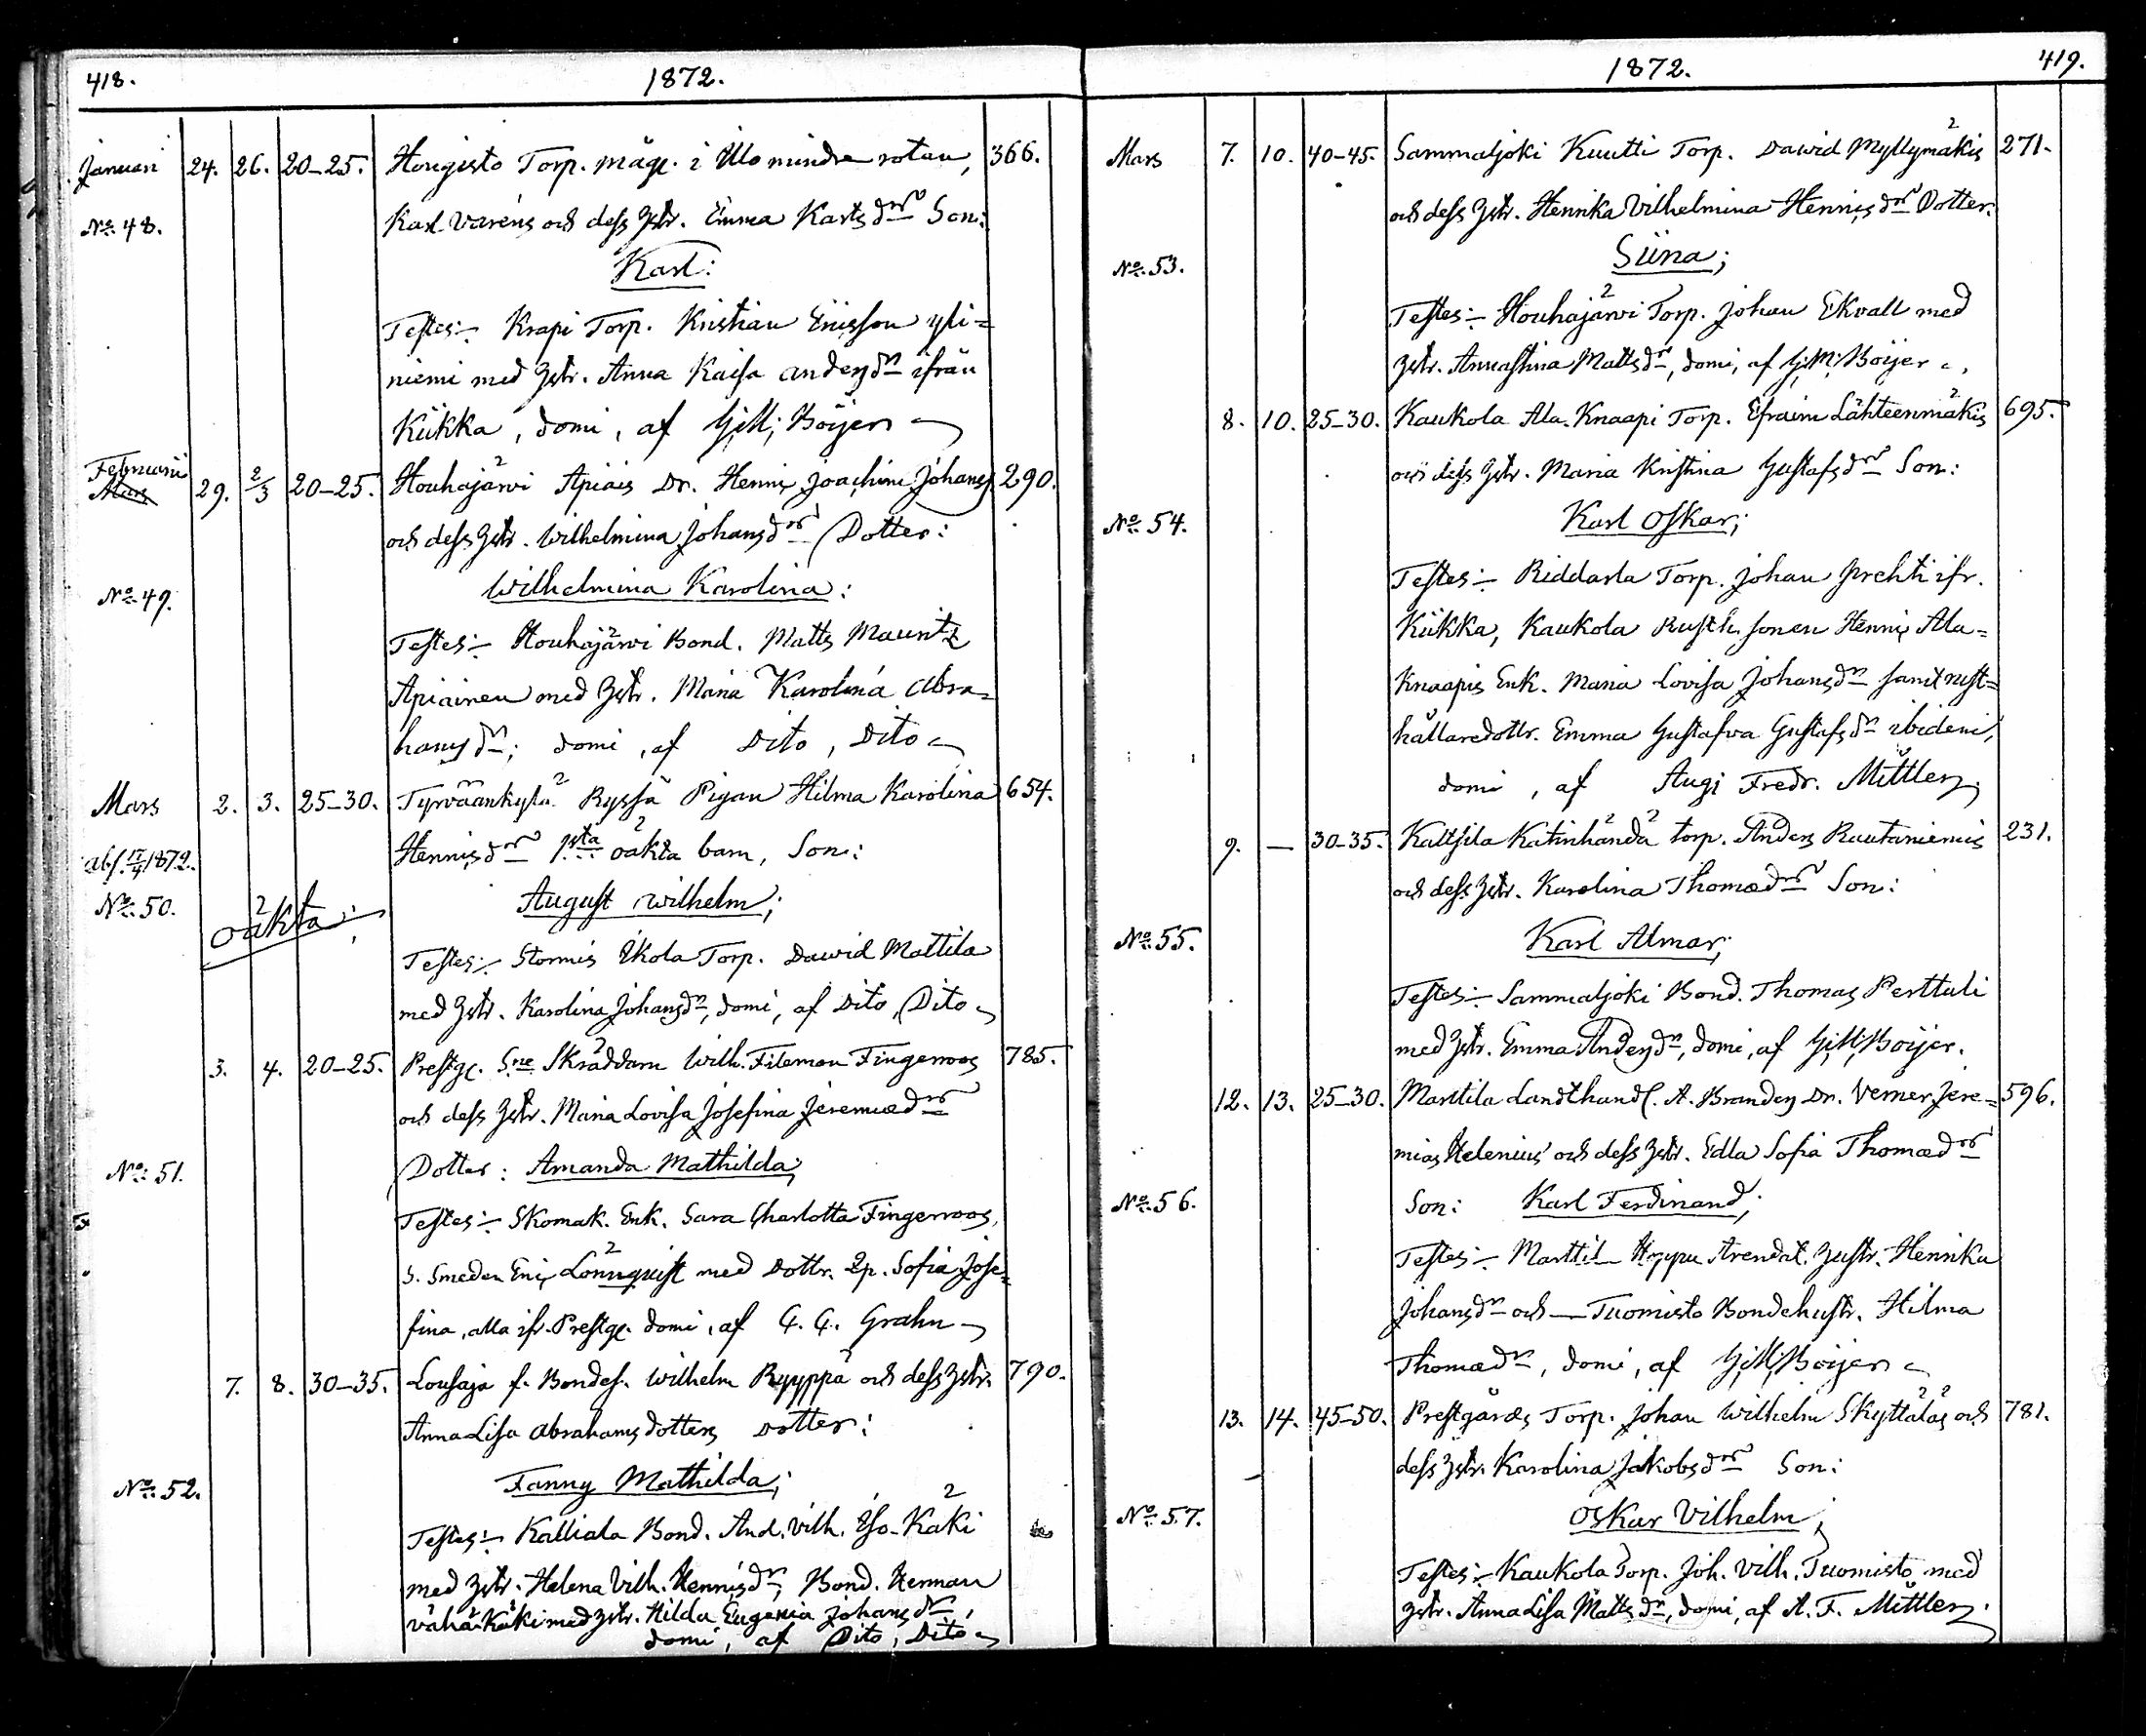 418.
1872.
Januari 24. 26. 20-25. Hongisto Torp. mäge. i Illo mindre rotan, 366.
No. 48.
Karl Varéns och dess Hstr. Emma Karlsdr Son:
Karl:
Testes:- Krapi Torp. Kristian Ericsson yli=
niemi med Hstr. Anna Kaisa Andersdr ifrån
Kiikka, domi, af G: M: Boijer
Februarii
Mars 29. 2/3 20-25. Houhajärvi Apiais Dr. Henric Joachim Johans 290.
och dess Hstr. Wilhelmina Johansdr Dotter:
No. 49.
Wilhelmina Karolina:
Testes:- Houhajärvi Bond. Matts Mauritz
Apiainen med Hstr. Maria Karolina Abra=
hamsdr; domi, af Dito, Dito
Mars 2. 3. 25-30. Tyrväänkylä Ryssä Pigan Hilma Karolina 654.
abs. 17/4 1872.
Henricsdr 1sta oäkta barn, Son:
No. 50.
oäkta:
August Wilhelm;
Testes:- Stormis Ekola Torp. Dawid Mattila
med Hstr. Karolina Johansdr, domi, af Dito, Dito
3. 4. 20-25. Prestge. Sne Skräddarn Wilh. Filemon Fingerroos 785.
och dess Hstr. Maria Lovisa Josefina Jeremiædr
No. 51.
Dotter: Amanda Mathilda;
Testes:- Skomak. Enk. Sara Charlotta Fingerroos,
S. Smeden Eric Lönnqvist med Dottr. Qp. Sofia Jose=
fina, alla ifr. Prestge. domi, af G. G. Grahn
7. 8. 30-35. Lousaja f. Bondes. Wilhelm Ryyppä och dess Hstr. 790.
Anna Lisa Abrahams dotters Dotter:
No. 52.
Fanny Mathilda;
Testes:- Kalliala Bond. And. Vilh. Iso-Käki
med Hstr. Helena Vilh. Henricsdr, Bond. Herman
Vähä-Käki med Hstr. Hilda Eugenia Johansdr,
domi, af Dito, Dito
1872.
419.
Mars 7. 10. 40-45. Sammaljoki Kuutti Torp. Dawid Myllymäkis 271.
och dess Hstr. Henrika Vilhelmina Henricsdr Dotter.
No. 53.
Siina;
Testes:- Houhajärvi Torp. Johan Ekvall med
Hstr. Annastina Mattsdr, domi, af G: M: Boijer
8. 10. 25-30. Kaukola Ala-Knaapi Torp. Efraim Lähteenmäkis 695.
och dess Hstr. Maria Kristina Gustafsdr Son:
No. 54.
Karl Oskar;
Testes:- Riddarla Torp. Johan Prehti ifr.
Kiikka, Kaukola Rusth. sonen Henric Ala=
Knaapis Enk. Maria Lovisa Johansdr samt rust=
hållaredottr. Emma Gustafva Gustafsdr ibidem,
domi, af Aug: Fredr. Mittler
9. — 30-35. Kaltsila Katinhändä torp. Anders Rautaniemis 231.
och dess Hstr. Karolina Thomædr Son:
No. 55.
Karl Almar;
Testes:- Sammaljoki Bond. Thomas Perttuli
med Hstr. Emma Andersdr, domi, af G: M: Boijer.
12. 13. 25-30. Marttila Landthandl. A. Branders Dr. Verner Jere= 596.
mias Helenius och dess Hstr. Edla Sofia Thomædr
No. 56.
Son: Karl Ferdinand;
Testes:- Marttila Hoppu Arendat. Hustr. Henrika
Johansdr och — Tuomisto Bondehustr. Hilma
Thomædr, domi, af G: M: Boijer
13. 14. 45-50. Prestgårds Torp. Johan Wilhelm Skyttäläs och 781.
dess Hstr. Karolina Jakobsdr Son:
No. 57.
Oskar Vilhelm;
Testes:- Kaukola Torp. Joh. Vilh. Tuomisto med
Hstr. Anna Lisa Mattsdr, domi, af A. F. Mittler.